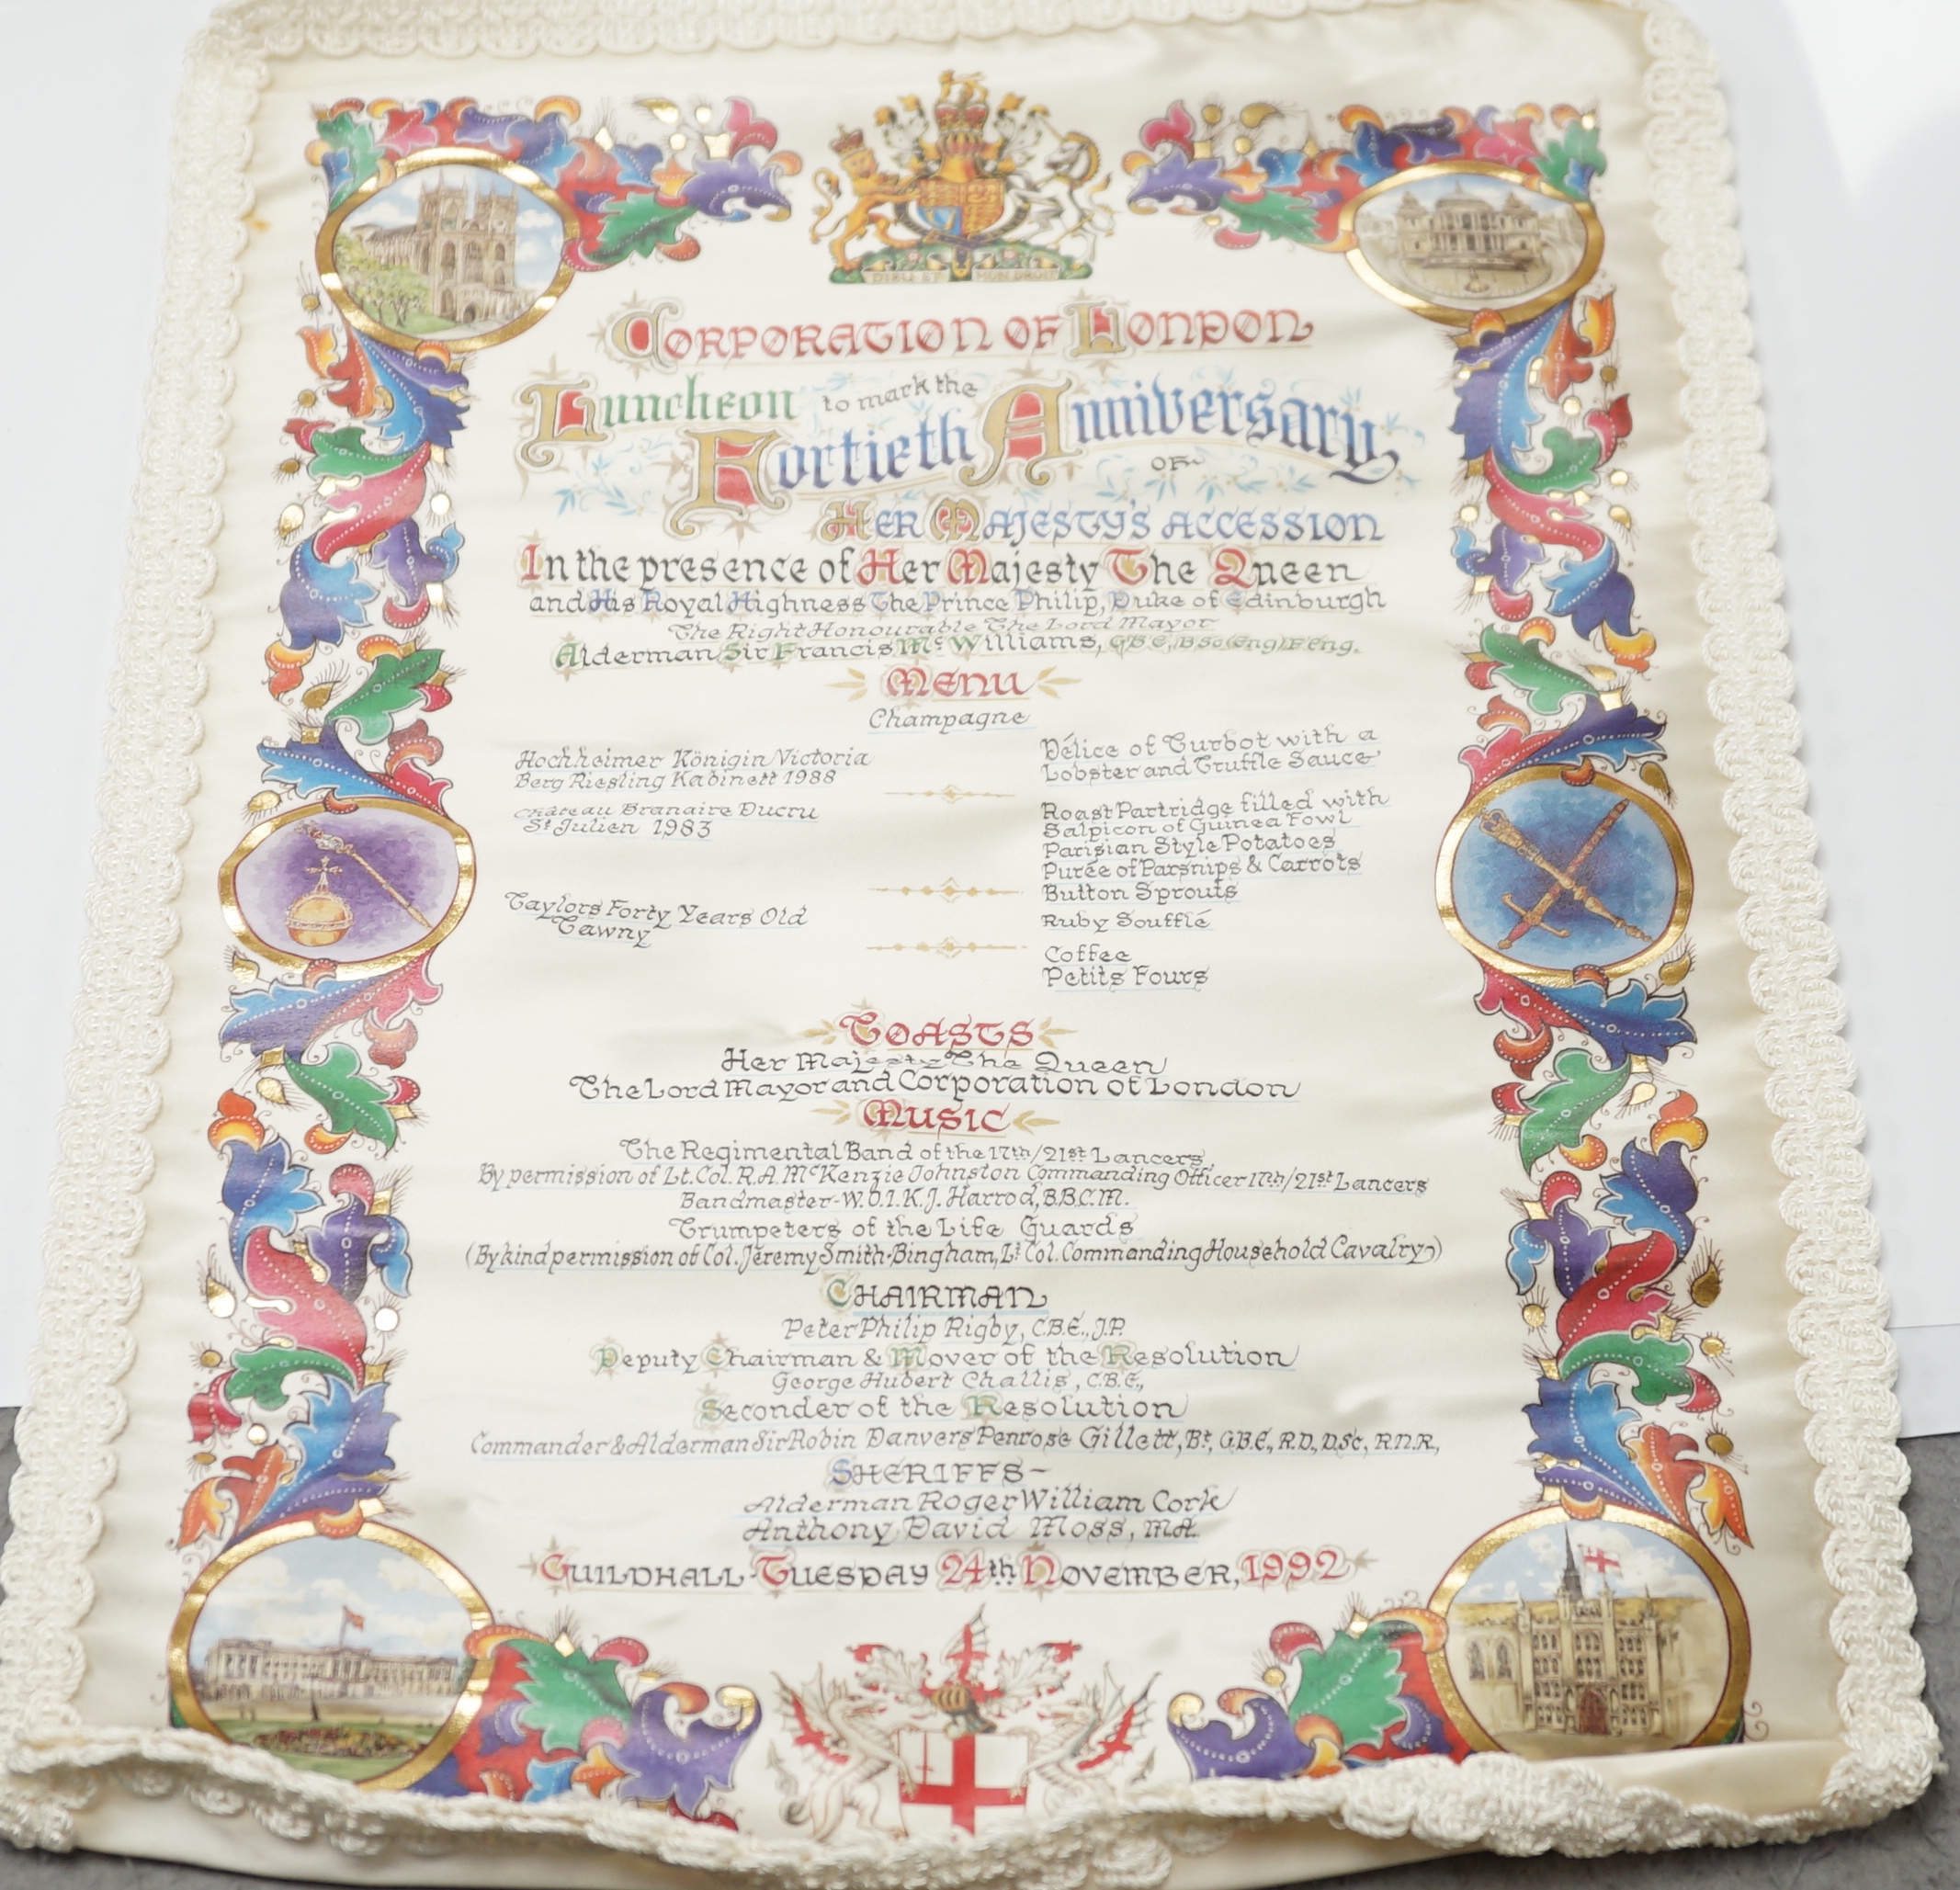 DIEU ET MON DROIT
CORPORATION OF LONDON
Luncheon to mark the
Fortieth Anniversary
OF
HER MAJESTY'S ACCESSION
In the presence of Her Majesty The Queen
and His Royal Highness The Prince Philip, Duke of Edinburgh
The Right Honourable The Lord Mayor
Alderman Sir Francis Mc Williams, GBE, BSc(Eng) FEng.
MENU
Champagne
Hochheimer Königin Victoria
Berg Riesling Kabinett 1988
Délice of Turbot with a
Lobster and Truffle Sauce
Château Branaire Ducru
St Julien 1983
Roast Partridge filled with
Salpicon of Guinea Fowl
Parisian Style Potatoes
Purée of Parsnips & Carrots
Button Sprouts
Taylors Forty Years Old
Tawny
Ruby Soufflé
Coffee
Petits Fours
TOASTS
Her Majesty The Queen
The Lord Mayor and Corporation of London
MUSIC
The Regimental Band of the 17th/21st Lancers
By permission of Lt. Col. R.A. McKenzie Johnston Commanding Officer 17th/21st Lancers
Bandmaster-W.O.1. K.J. Harrod, B.B.C.M.
Trumpeters of the Life Guards
(By kind permission of Col. Jeremy Smith-Bingham, Lt Col. Commanding Household Cavalry)
CHAIRMAN
Peter Philip Rigby, C.B.E., J.P.
Deputy Chairman & Mover of the Resolution
George Hubert Challis, C.B.E.,
Seconder of the Resolution
Commander & Alderman Sir Robin Danvers Penrose Gillett, Bt, G.B.E., R.D., D.Sc, R.N.R.,
SHERIFFS-
Alderman Roger William Cork
Anthony David Moss, MA.
GUILDHALL-TUESDAY 24th NOVEMBER, 1992